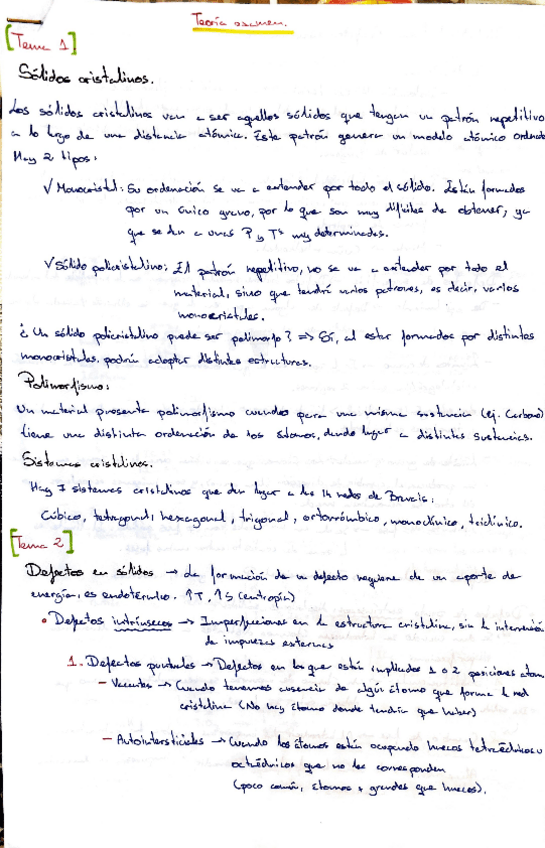 Teoría examen.
[Tema 1]
Sólidos cristalinos.
Los sólidos cristalinos van a ser aquellos sólidos que tengan un patrón repetitivo
a lo largo de una distancia atómica. Este patrón genera un modelo atómico ordenado
Hay 2 tipos:
✓ Monocristal: Su ordenación se va a extender por todo el sólido. Están formados
por un único grano, por lo que son muy difíciles de obtener, ya
que se dan a unas P y Tª muy determinadas.
✓ Sólido policristalino: El patrón repetitivo, no se va a extender por todo el
material, sino que tendrá varios patrones, es decir, varios
monocristales.
¿Un sólido policristalino puede ser polimorfo? => Sí, al estar formados por distintos
monocristales, podrán adoptar distintas estructuras.
Polimorfismo:
Un material presenta polimorfismo cuando para una misma sustancia (ej. Carbono)
tiene una distinta ordenación de los átomos, dando lugar a distintas sustancias.
Sistemas cristalinos.
Hay 7 sistemas cristalinos que dan lugar a las 14 redes de Bravais:
Cúbico, tetragonal, hexagonal, trigonal, ortorrómbico, monoclínico, triclínico.
[Tema 2]
Defectos en sólidos → La formación de un defecto requiere de un aporte de
energía, es endotérmico. ↑T, ↑S (entropía)
• Defectos intrínsecos → Imperfecciones en la estructura cristalina, sin la intervención
de impurezas externas
1. Defectos puntuales → Defectos en los que están implicados 1 o 2 posiciones atom.
- Vacantes → Cuando tenemos ausencia de algún átomo que forma la red
cristalina (No hay átomo donde tendría que haber)
- Autointersticiales → Cuando los átomos están ocupando huecos tetraédricos u
octaédricos que no les corresponden
(poco común, átomos + grandes que huecos).